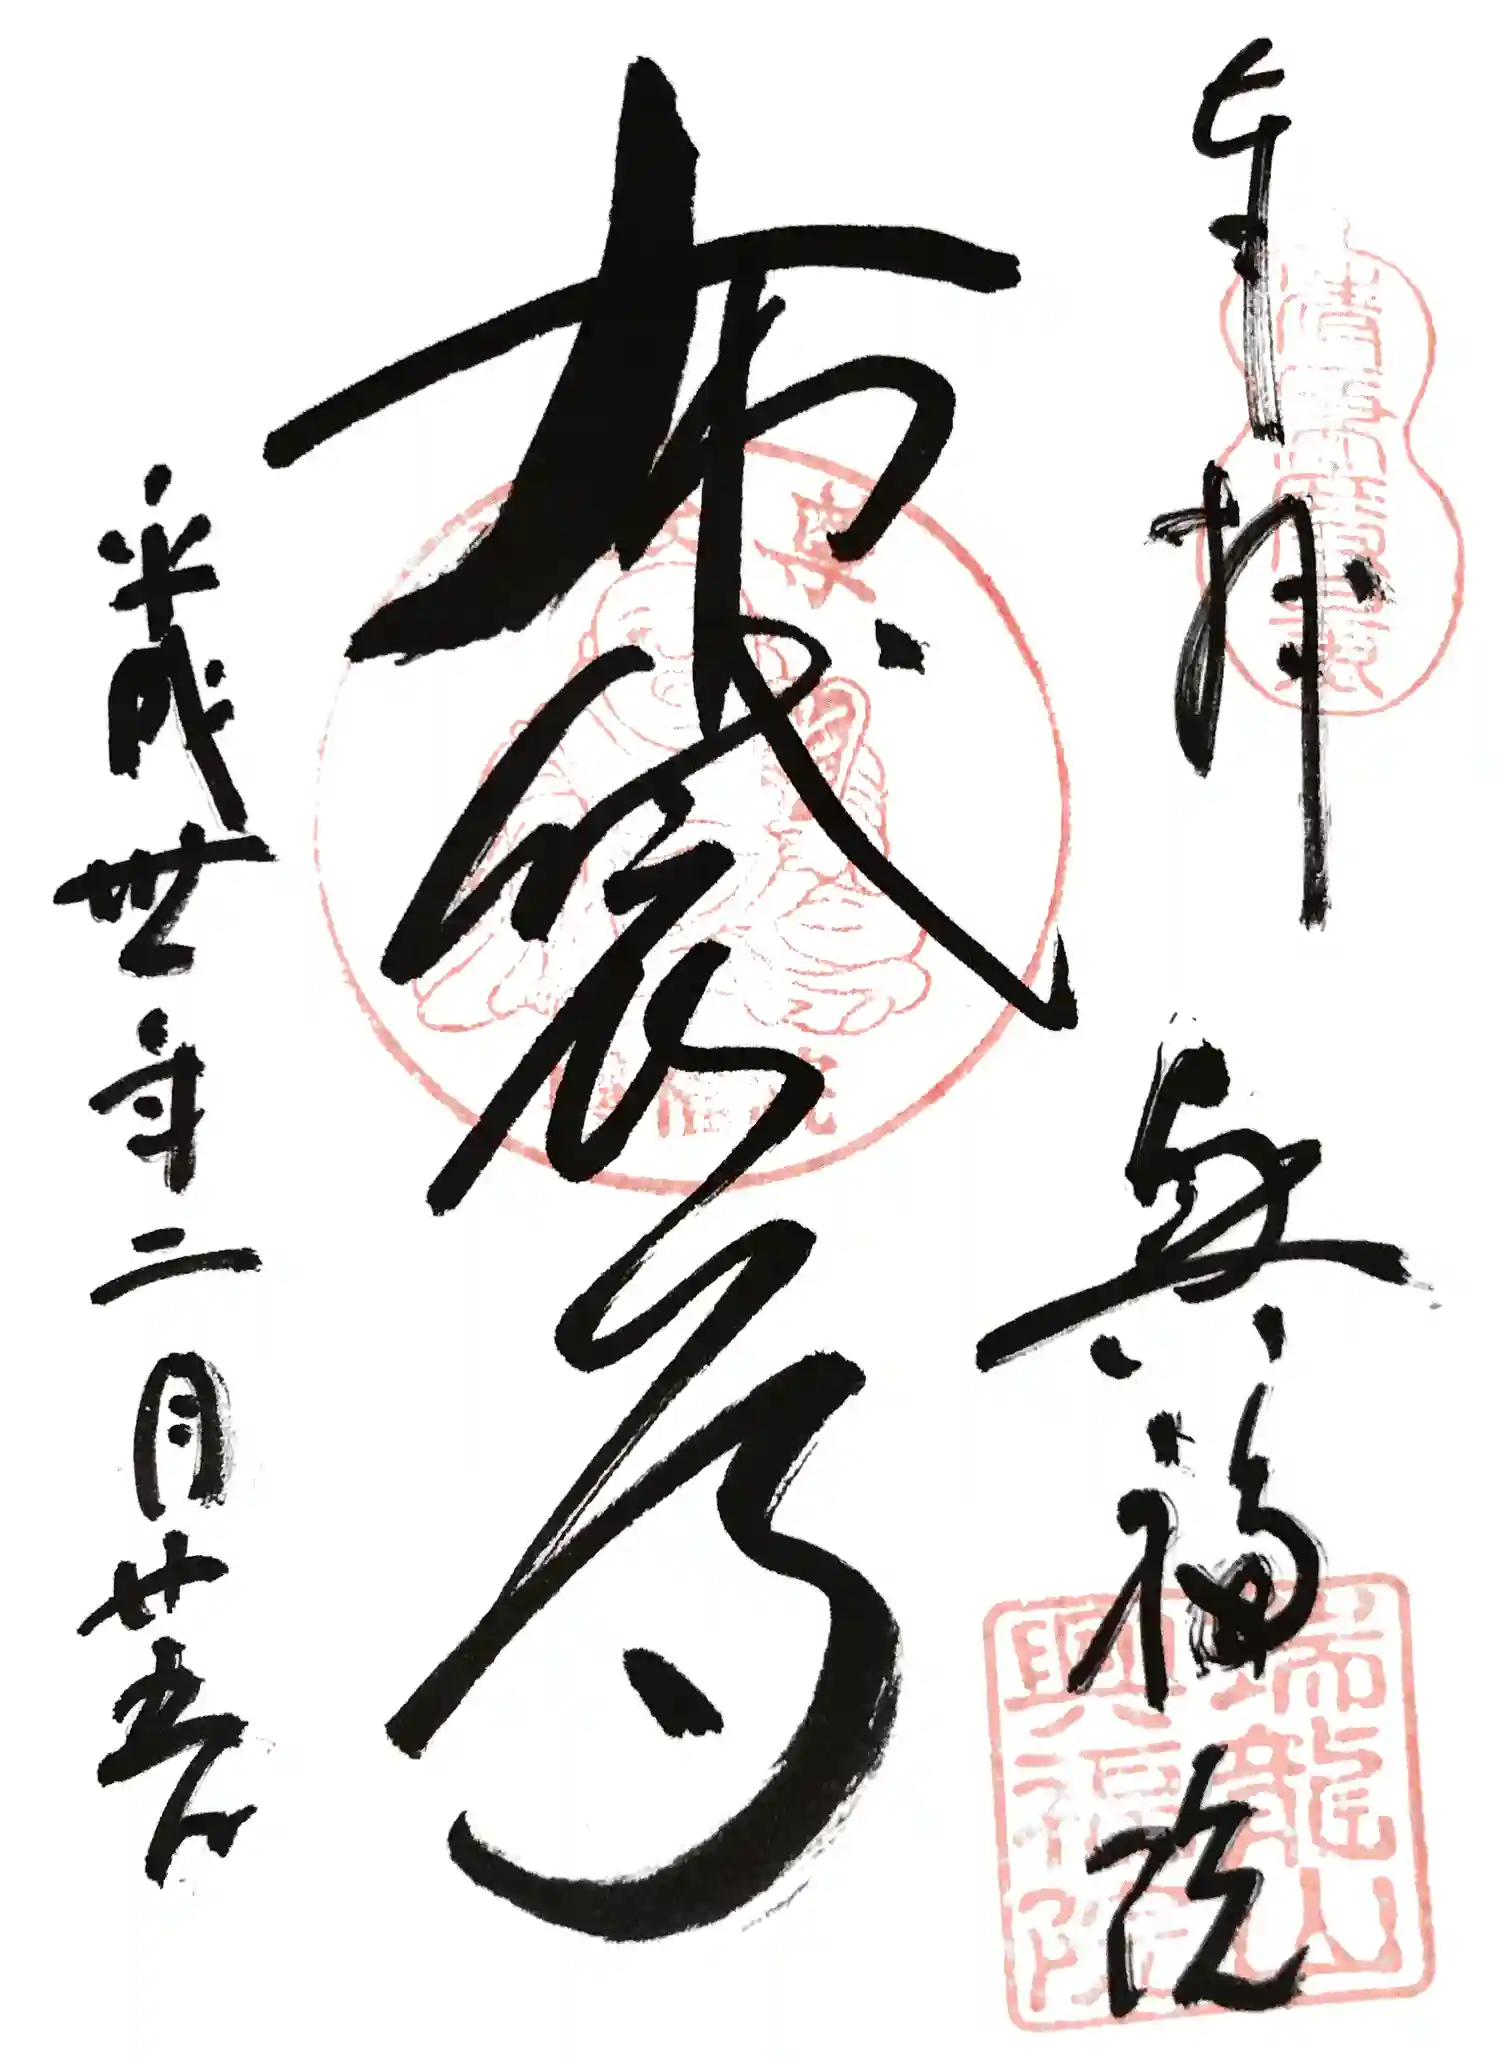 奉拝 興福院
布袋尊
平成卅一年二月廿五日
瑞龍山
興福院